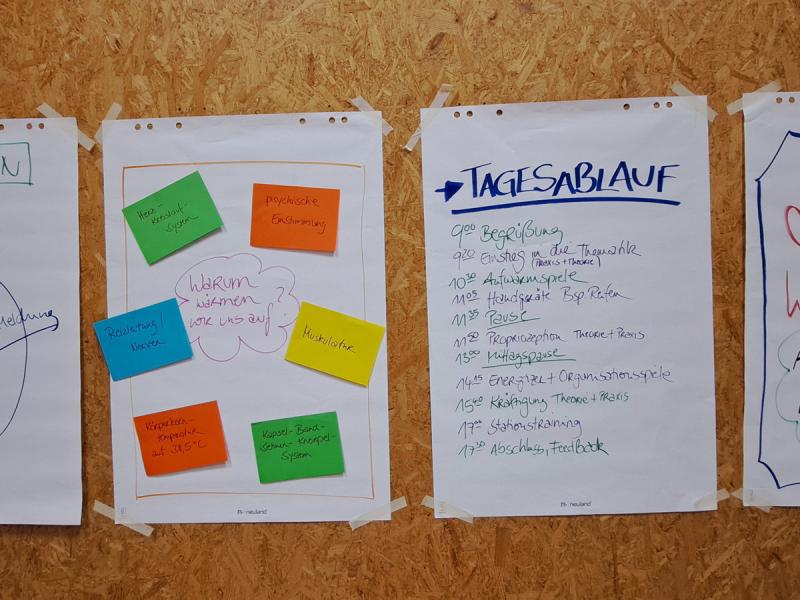 N
Meldung
Herz-
Kreislauf-
System
psychische
Einstimmung
Warum
wärmen
wir uns auf?
Reizleitung/
Nerven
Muskulatur
Körperkern-
temperatur
auf 38,5°C
Kapsel-Band-
Sehnen-Knorpel-
System
neuland
TAGESABLAUF
9⁰⁰ Begrüßung
9²⁰ Einstieg in die Thematik
(Praxis+Theorie)
10³⁰ Aufwärmspiele
11⁰⁵ Handgeräte Bsp Reifen
11³⁵ Pause
11⁵⁰ Propriozeption Theorie+Praxis
13⁰⁰ Mittagspause
14¹⁵ Energizer + Organisationsspiele
15⁴⁰ Kräftigung Theorie+Praxis
17⁰⁰ Stationstraining
17³⁰ Abschluss, Feedback
neuland